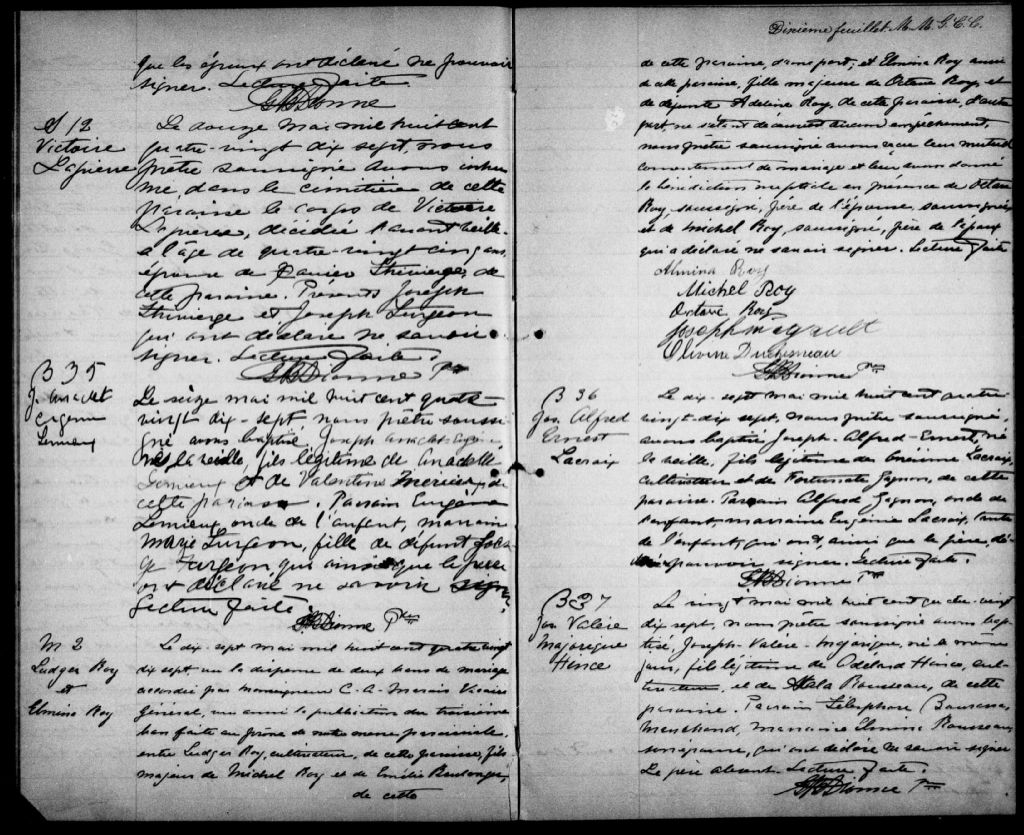 que les époux ont déclaré ne pouvoir
signer. Lecture faite
GHDionne
S 12
Victoire
Lapierre
Le douze mai mil huit cent
quatre-vingt dix sept, nous
prêtre soussigné avons inhu
mé dans le cimetière de cette
paroisse le corps de Victoire
Lapierre, décédée l'avant veille
à l'âge de quatre-vingt cinq ans,
épouse de Xavier Thivierge, de
cette paroisse. Présents Joseph
Thivierge et Joseph Turgeon
qui ont déclaré ne savoir
signer. Lecture faite.
Dionne Ptre
B 35
J. Anaclet
Eugène
Lemieux
Le seize mai mil huit cent quatre
vingt dix-sept nous prêtre soussi
gné avons baptisé Joseph Anaclet Eugène
né la veille, fils légitime de Anaclet
Lemieux et de Valentine Mercier, de
cette paroisse. Parrain Eugène
Lemieux, oncle de l'enfant, marraine
Marie Turgeon, fille de défunt
Turgeon, qui ainsi que le père
ont déclaré ne savoir signer
Lecture faite.
Dionne Ptre
M 2
Ludger Roy
et
Elmina Roy
Le dix-sept mai mil huit cent quatre vingt
dix sept, vu la dispense de deux bans de mariage
accordée par monseigneur C. A. Marois Vicaire
Général, vu aussi la publication du troisième
ban faite au prône de notre messe paroissiale,
entre Ludger Roy, cultivateur, de cette paroisse, fils
majeur de Michel Roy et de Emilie Boulanger,
de cette
Dixième feuillet. M. M. G. C. C.
de cette paroisse, d'une part; et Elmina Roy aussi
de cette paroisse, fille majeure de Octave Roy, et
de défunte Adeline Roy, de cette paroisse, d'autre
part, ne s'étant découvert aucun empêchement,
nous prêtre soussigné avons reçu leur mutuel
consentement de mariage et leur avons donné
la bénédiction nuptiale en présence de Octave
Roy, soussigné, père de l'épouse, soussignée
et de Michel Roy, soussigné, père de l'époux
qui a déclaré ne savoir signer. Lecture faite
Almina Roy
Michel Roy
Octave Roy
Joseph
Olivine Duchesneau
Dionne Ptre
B 36
Jos. Alfred
Ernest
Lacroix
Le dix-sept mai mil huit cent quatre
vingt-dix sept, nous prêtre soussigné,
avons baptisé Joseph-Alfred-Ernest, né
la veille, fils légitime de Onésime Lacroix,
cultivateur et de Fortunate Gagnon, de cette
paroisse. Parrain Alfred Gagnon, oncle de
l'enfant, marraine Eugénie Lacroix, tante
de l'enfant, qui ont, ainsi que le père, dé-
claré ne pouvoir signer. Lecture faite.
Dionne Ptre
B 37
Jos Valère
Majorique
Hince
Le vingt mai mil huit cent quatre-vingt
dix sept, nous prêtre soussigné avons bap
tisé, Joseph-Valère-Majorique, né le même
jour, fils légitime de Odelard Hince, cul-
tivateur, et de Stala Rousseau, de cette
paroisse. Parrain Télesphore
marchand, marraine Elmina Rousseau
son épouse, qui ont déclaré ne savoir signer
Le père absent. Lecture faite.
Dionne Ptre